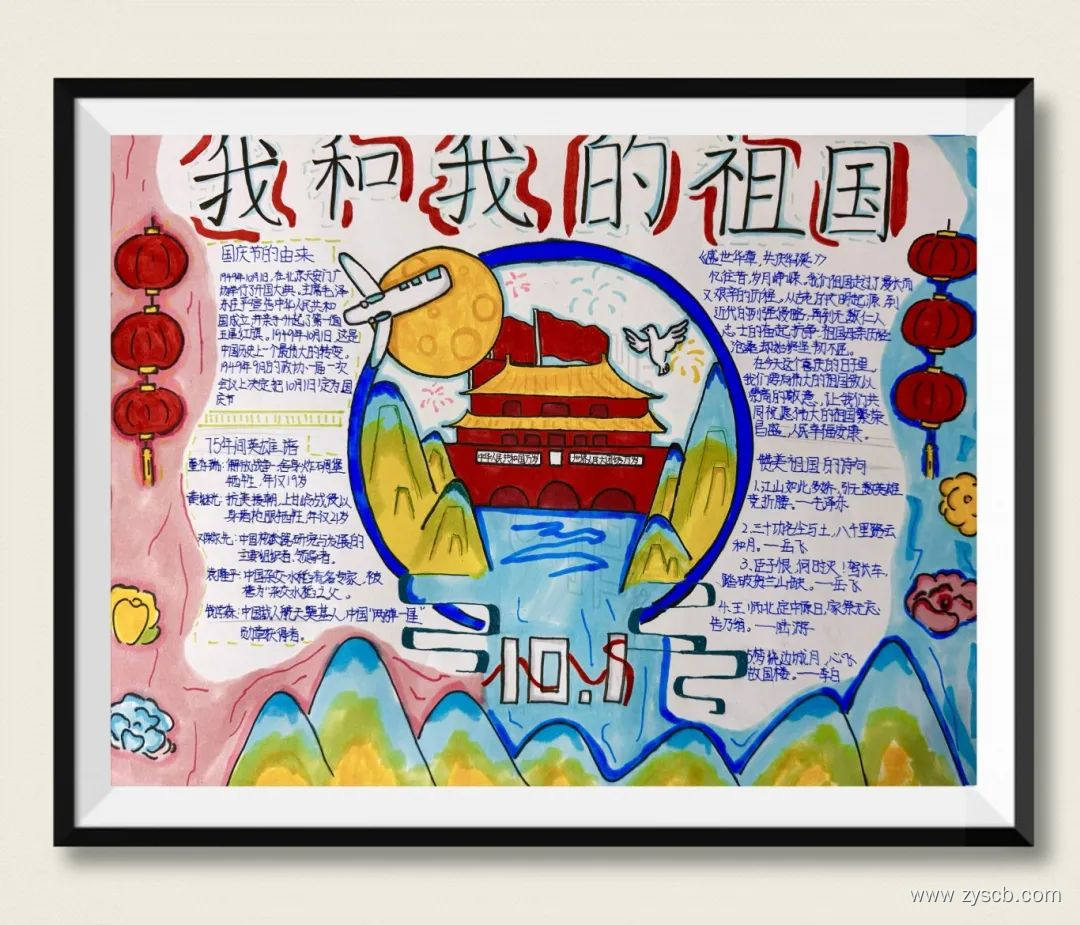 我和我的祖国
国庆节的由来
1949年10月1日,在北京天安门广
场举行了开国大典。主席毛泽
东在乎宣告中华人民共和
国成立,并亲手升起了第一面
五星红旗。1949年10月1日,这是
中国历史上一个最伟大的转变。
1949年9月的政协一届一次
会议上决定把10月1日定为国
庆节
75年间英雄谱
董存瑞:解放战争舍身炸碉堡
牺牲,年仅19岁
黄继光:抗美援朝,上甘岭战役以
身堵枪眼牺牲,年仅21岁
邓稼先:中国核武器研究与发展的
主要组织者、领导者。
袁隆平:中国杂交水稻著名专家,被
誉为“杂交水稻之父”。
钱学森:中国载人航天奠基人,中国“两弹一星”
勋章获得者。
中华人民共和国万岁
世界人民大团结万岁
10.1
《盛世华章,共庆华诞》
忆往昔,岁月峥嵘,我们祖国走过了漫长而
又艰辛的历程。从古老的代明起源,到
近代的列强侵略,再到无数仁人
志士的奋起抗争,祖国母亲历经
沧桑却始终坚韧不屈。
在今天这个喜庆的日子里,
我们要向伟大的祖国致以
崇高的敬意,让我们共
同祝愿伟大的祖国繁荣
昌盛,人民幸福安康。
赞美祖国的诗句
1.江山如此多娇,引无数英雄
竞折腰。——毛泽东
2.三十功名尘与土,八千里路云
和月。——岳飞
3.臣子恨,何时灭!驾长车,
踏破贺兰山缺。——岳飞
4.王师北定中原日,家祭无忘
告乃翁。——陆游
5.旁挠边城月,心飞
故国楼。——李白
www.zyscb.com